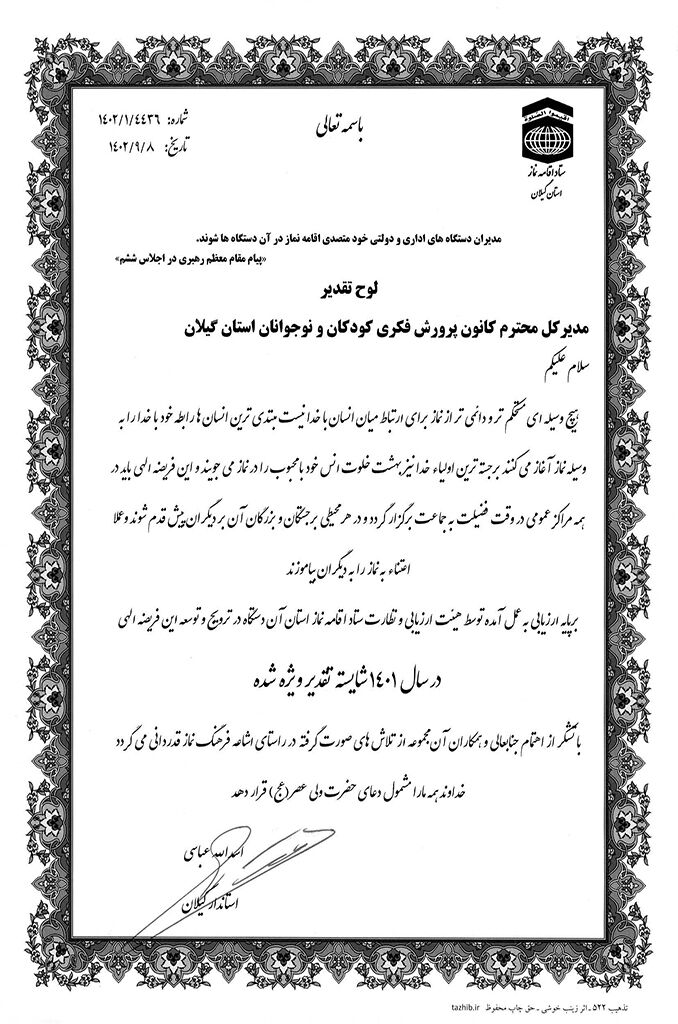 باسمه تعالی
شماره: ۱۴۰۲/۱/۴۴۳۶
تاریخ: ۱۴۰۲/۹/۸
اقیموا الصلوة
ستاد اقامه نماز
استان گیلان
مدیران دستگاه های اداری و دولتی خود متصدی اقامه نماز در آن دستگاه ها شوند.
«پیام مقام معظم رهبری در اجلاس ششم»
لوح تقدیر
مدیرکل محترم کانون پرورش فکری کودکان و نوجوانان استان گیلان
سلام علیکم
هیچ وسیله ای مستحکم تر و دائمی تر از نماز برای ارتباط میان انسان با خدا نیست مبتدی ترین انسان ها رابطه خود با خدا را به
وسیله نماز آغاز می کنند برجسته ترین اولیاء خدا نیز بهشت خلوت انس خود با محبوب را در نماز می جویند و این فریضه الهی باید در
همه مراکز عمومی در وقت فضیلت به جماعت برگزار گردد و در هر محیطی برجستگان و بزرگان آن بر دیگران پیش قدم شوند و عملا
اعتناء به نماز را به دیگران بیاموزند
برپایه ارزیابی به عمل آمده توسط هیئت ارزیابی و نظارت ستاد اقامه نماز استان آن دستگاه در ترویج و توسعه این فریضه الهی
در سال ۱۴۰۱ شایسته تقدیر ویژه شده
با تشکر از اهتمام جنابعالی و همکاران آن مجموعه از تلاش های صورت گرفته در راستای اشاعه فرهنگ نماز قدردانی می گردد
خداوند همه ما را مشمول دعای حضرت ولی عصر (عج) قرار دهد
اسدالله عباسی
استاندار گیلان
تذهیب ۵۲۲ ـ اثر زینب خوشی ـ حق چاپ محفوظ tazhib.ir